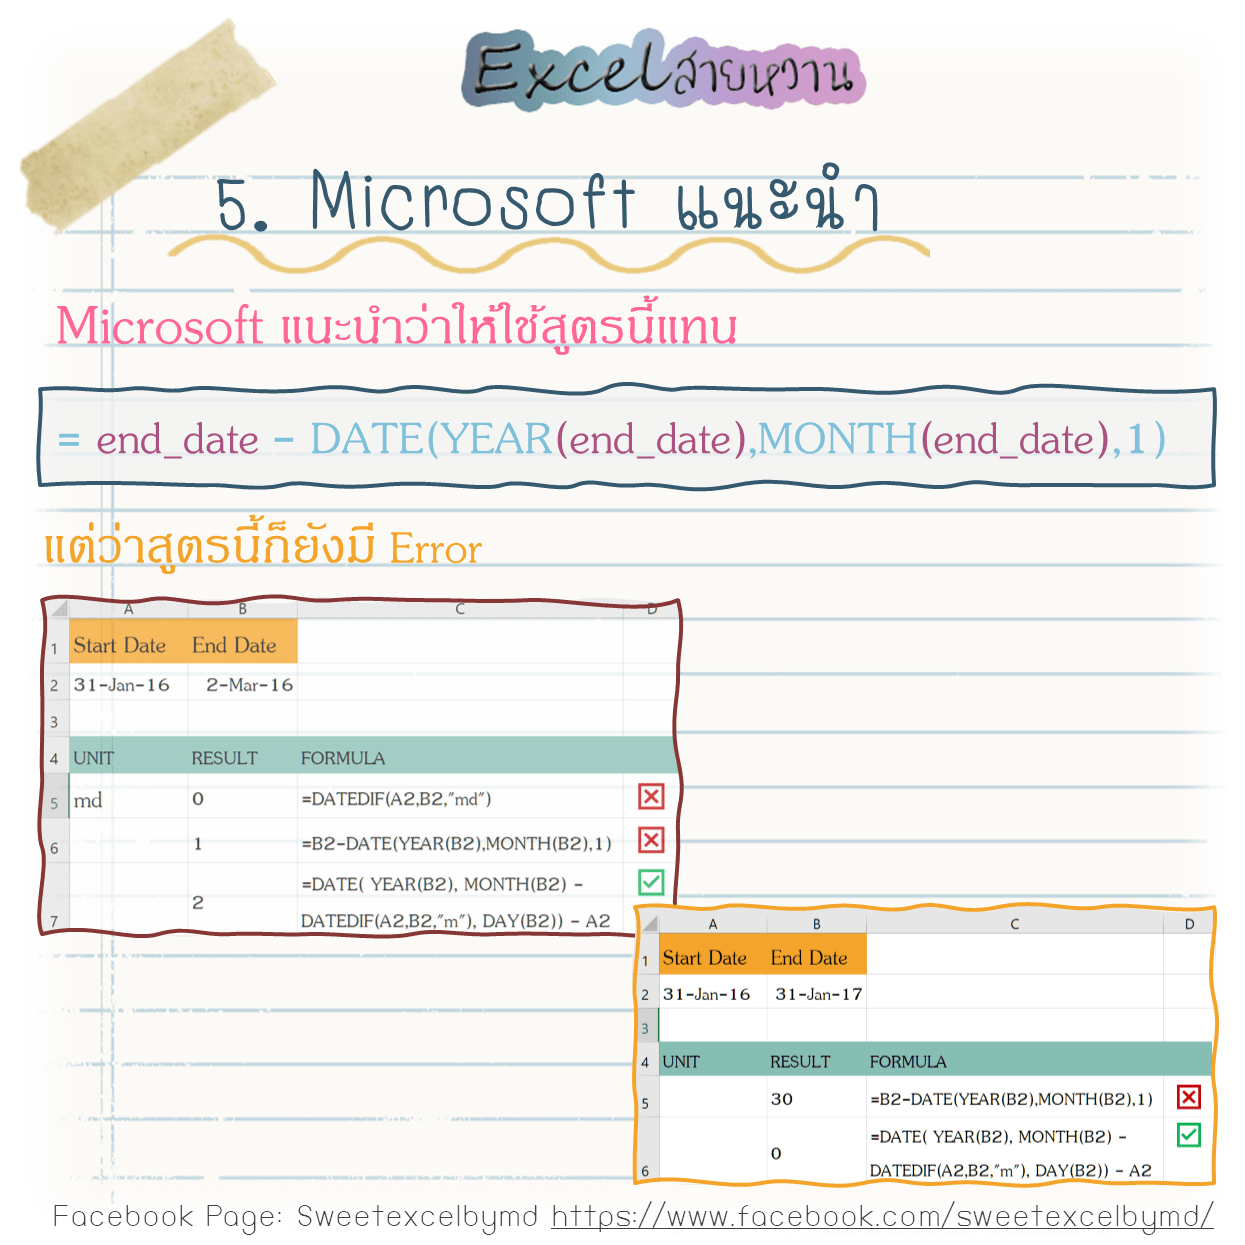 Excelสายหวาน
5. Microsoft แนะนำ
Microsoft แนะนำว่าให้ใช้สูตรนี้แทน
= end_date - DATE(YEAR(end_date),MONTH(end_date),1)
แต่ว่าสูตรนี้ก็ยังมี Error
A B C D
1 Start Date End Date
2 31-Jan-16 2-Mar-16
3
4 UNIT RESULT FORMULA
5 md 0 =DATEDIF(A2,B2,"md")
6 1 =B2-DATE(YEAR(B2),MONTH(B2),1)
=DATE( YEAR(B2), MONTH(B2) -
7 2 DATEDIF(A2,B2,"m"), DAY(B2)) - A2
A B C D
1 Start Date End Date
2 31-Jan-16 31-Jan-17
3
4 UNIT RESULT FORMULA
5 30 =B2-DATE(YEAR(B2),MONTH(B2),1)
=DATE( YEAR(B2), MONTH(B2) -
6 0 DATEDIF(A2,B2,"m"), DAY(B2)) - A2
Facebook Page: Sweetexcelbymd https://www.facebook.com/sweetexcelbymd/